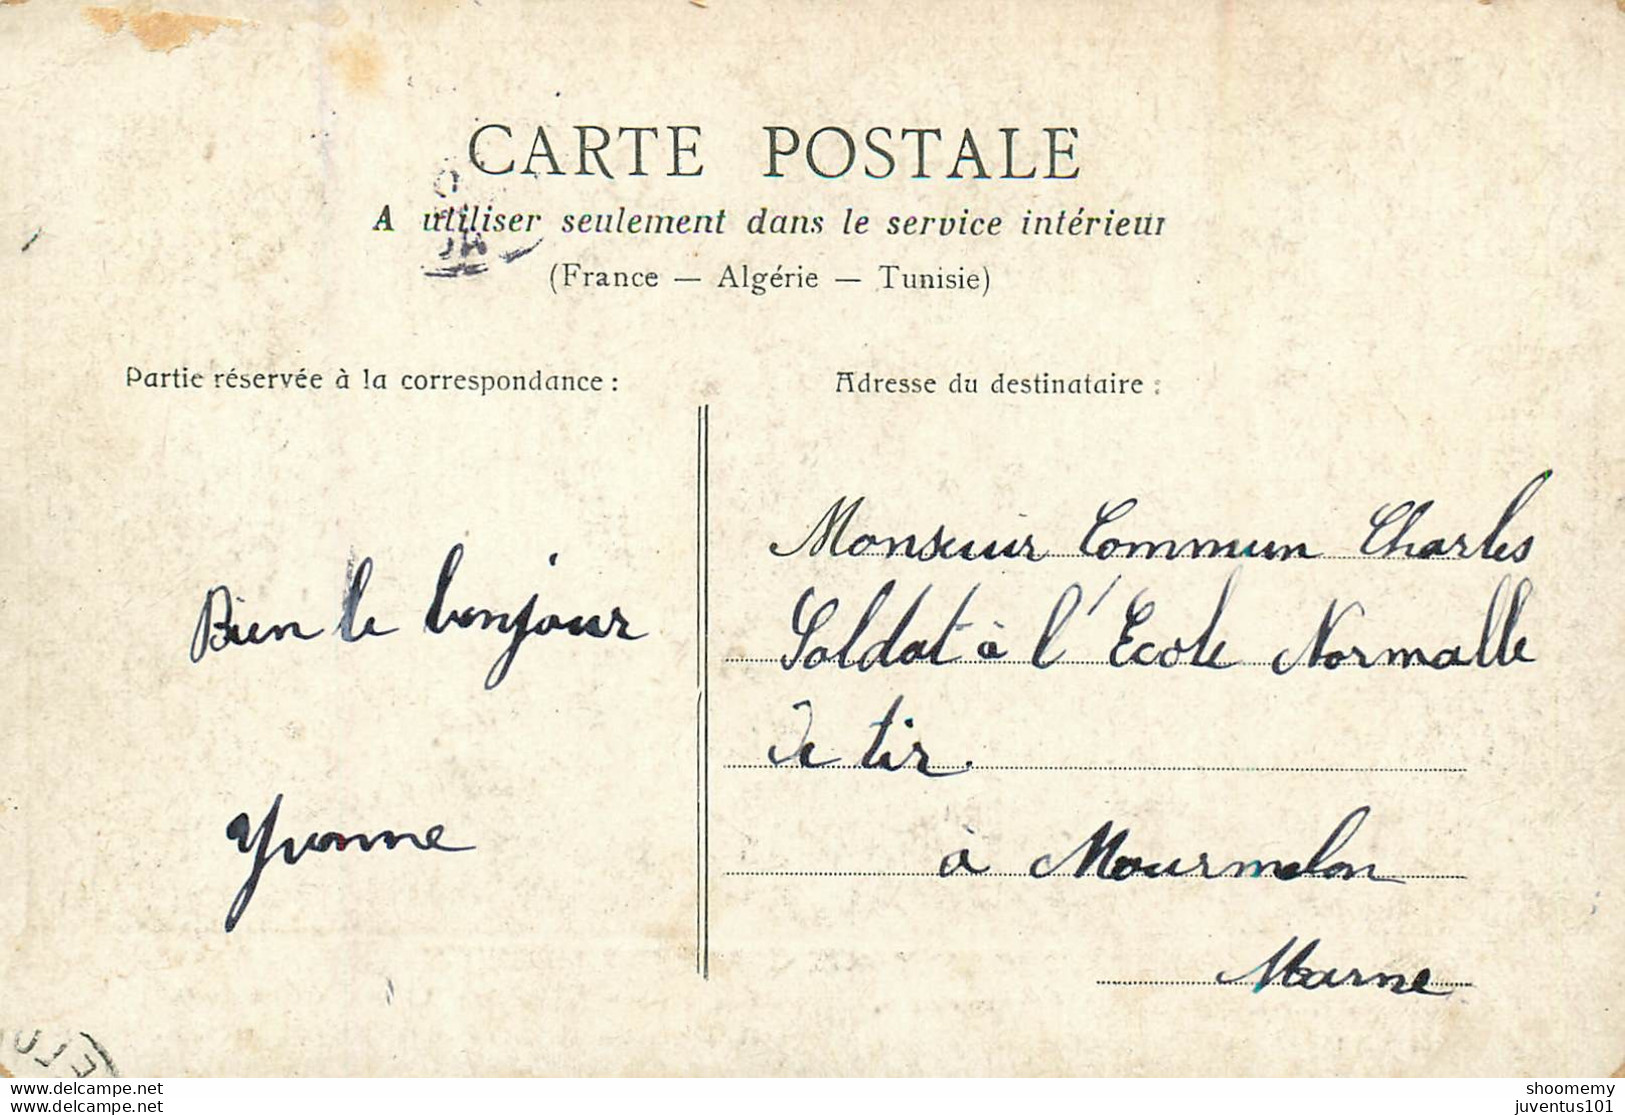 CARTE POSTALE
A utiliser seulement dans le service intérieur
(France — Algérie — Tunisie)
Partie réservée à la correspondance :
Bien le bonjour
Yvonne
Adresse du destinataire :
Monsieur Commun Charles
Soldat à l'Ecole Normalle
de tir.
à Mourmelon
Marne
www.delcampe.net
www.delcampe.net
shoomemy
juventus101